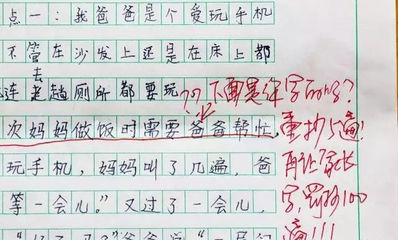 点一：我爸爸是个爱玩手机
不管在沙发上还是在床上都
去
连老趟厕所都要玩
??下面是你写的吗?
次妈妈做饭时需要爸爸帮忙，
重抄5遍!
玩手机，妈妈叫了几遍，爸
再让家长
等一会儿。”又过了一会儿，
写,罚抄100
遍!!!